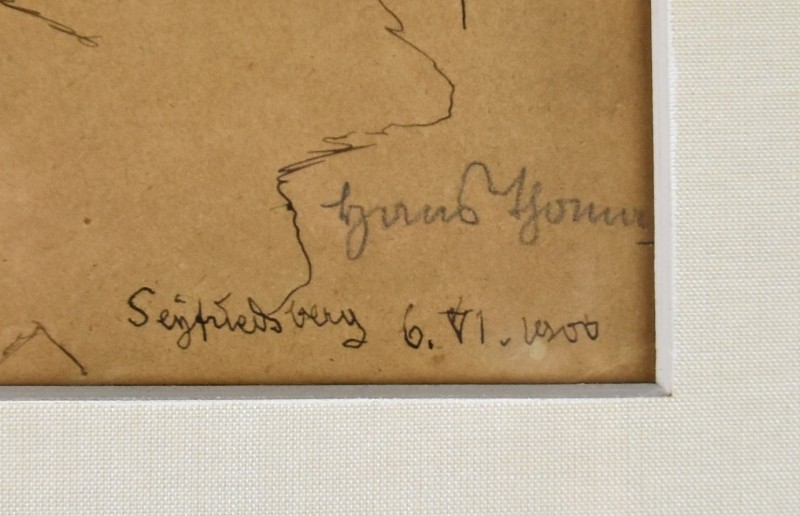 Hans Thoma
Seÿfriedsberg 6. VI. 1900